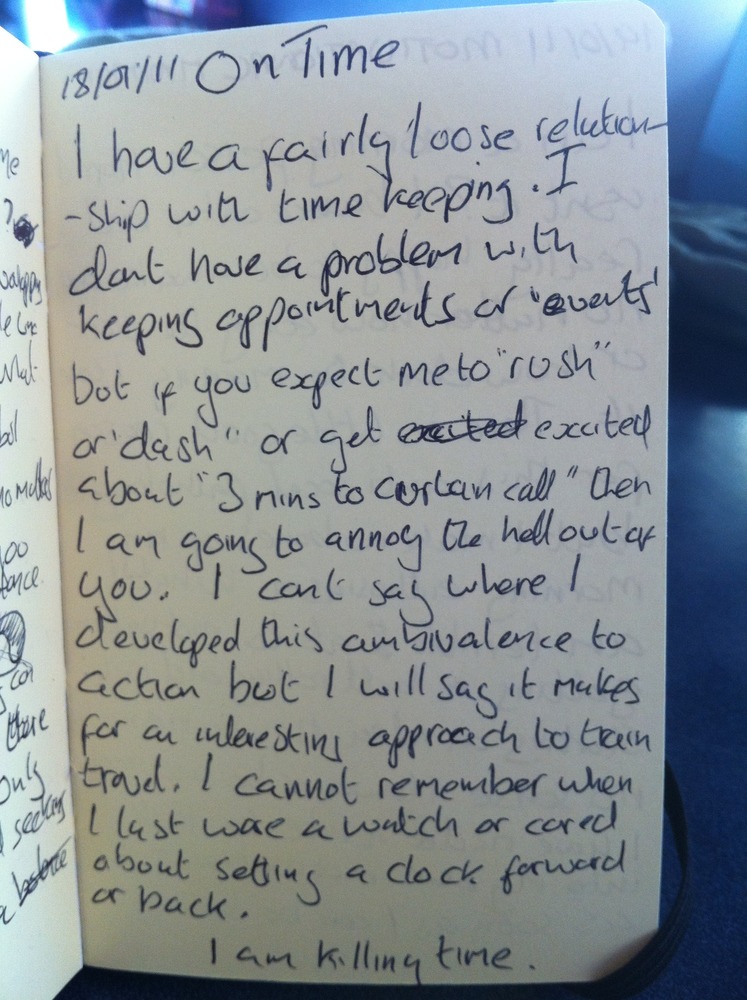 18/01/11 On Time
I have a fairly loose relation-
-ship with time keeping. I
dont have a problem with
keeping appointments or 'events'
but if you expect me to "rush"
or 'dash" or get excited excited
about "3 mins to curtain call" then
I am going to annoy the hell out of
you. I cant say where I
developed this ambivalence to
action but I will say it makes
for an interesting approach to train
travel. I cannot remember when
I last wore a watch or cared
about setting a clock forward
or back.
I am killing time.
me
?
what
no matter
too
can
there
only
seeking
a balance